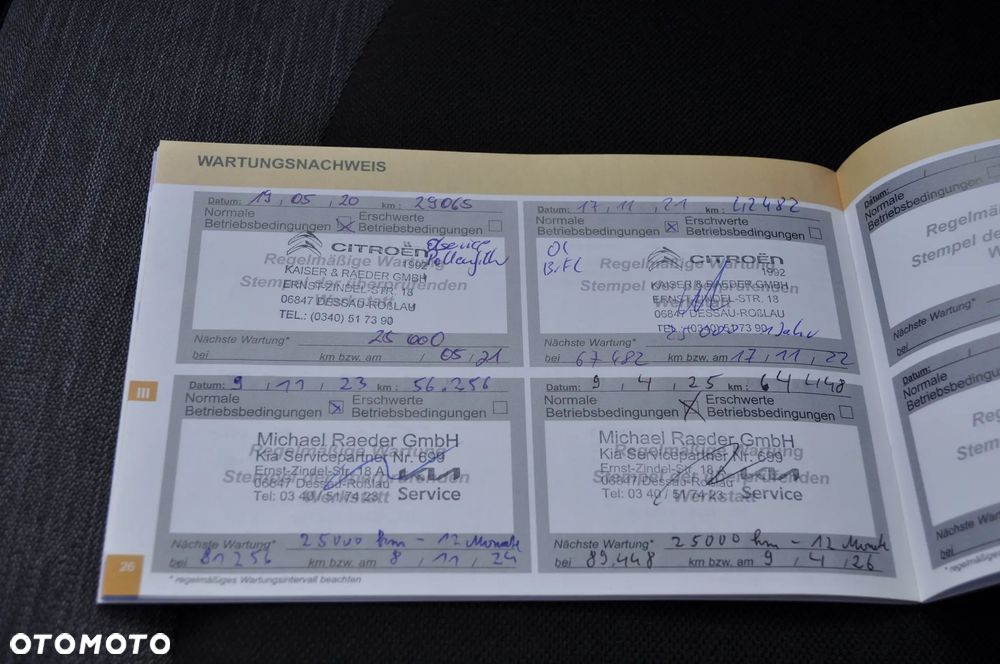 WARTUNGSNACHWEIS
Datum: 19, 05, 20 km: 29065
Normale Betriebsbedingungen
Erschwerte Betriebsbedingungen
CITROËN
1992
Regelmäßige Wartung
KAISER & RAEDER GMBH
Stempel der überprüfenden
ERNST-ZINDEL-STR. 18
06847 DESSAU-ROßLAU
Werkstatt
TEL.: (0340) 51 73 90
Nächste Wartung* 25 000
bei km bzw. am / 05 / 21
Datum: 17, 11, 21 km: 42482
Normale Betriebsbedingungen
Erschwerte Betriebsbedingungen
Öl
CITROËN
1992
Regelmäßige Wartung
KAISER & RAEDER GMBH
ERNST-ZINDEL-STR. 18
06847 DESSAU-ROßLAU
TEL.: (0340) 51 73 90
Nächste Wartung* 25 000 1 Jahr
bei 67482 km bzw. am 17, 11, 22
III
Datum: 9, 11, 23 km: 56.256
Normale Betriebsbedingungen
Erschwerte Betriebsbedingungen
Michael Raeder GmbH
Regelmäßige Wartung
Kia Servicepartner Nr. 699
Ernst-Zindel-Str. 18 A
06847 Dessau-Roßlau
Tel: 03 40 / 51 74 23
KIA
Service
Werkstatt
Nächste Wartung* 25000 km - 12 Monate
bei 81256 km bzw. am 8, 11, 24
Datum: 9, 4, 25 km: 64448
Normale Betriebsbedingungen
Erschwerte Betriebsbedingungen
Michael Raeder GmbH
Regelmäßige Wartung
Kia Servicepartner Nr. 699
Ernst-Zindel-Str. 18 A
06847 Dessau-Roßlau
Tel: 03 40 / 51 74 23
KIA
Service
Werkstatt
Nächste Wartung* 25000 km - 12 Monate
bei 89,448 km bzw. am 9, 4, 26
26
* regelmäßiges Wartungsintervall beachten
Datum:
Normale
Betriebsbedingungen
Stempel de
Nächste Wartung*
bei
Datum:
Normale
Betriebsbedingungen
Nächste Wartung*
bei
OTOMOTO